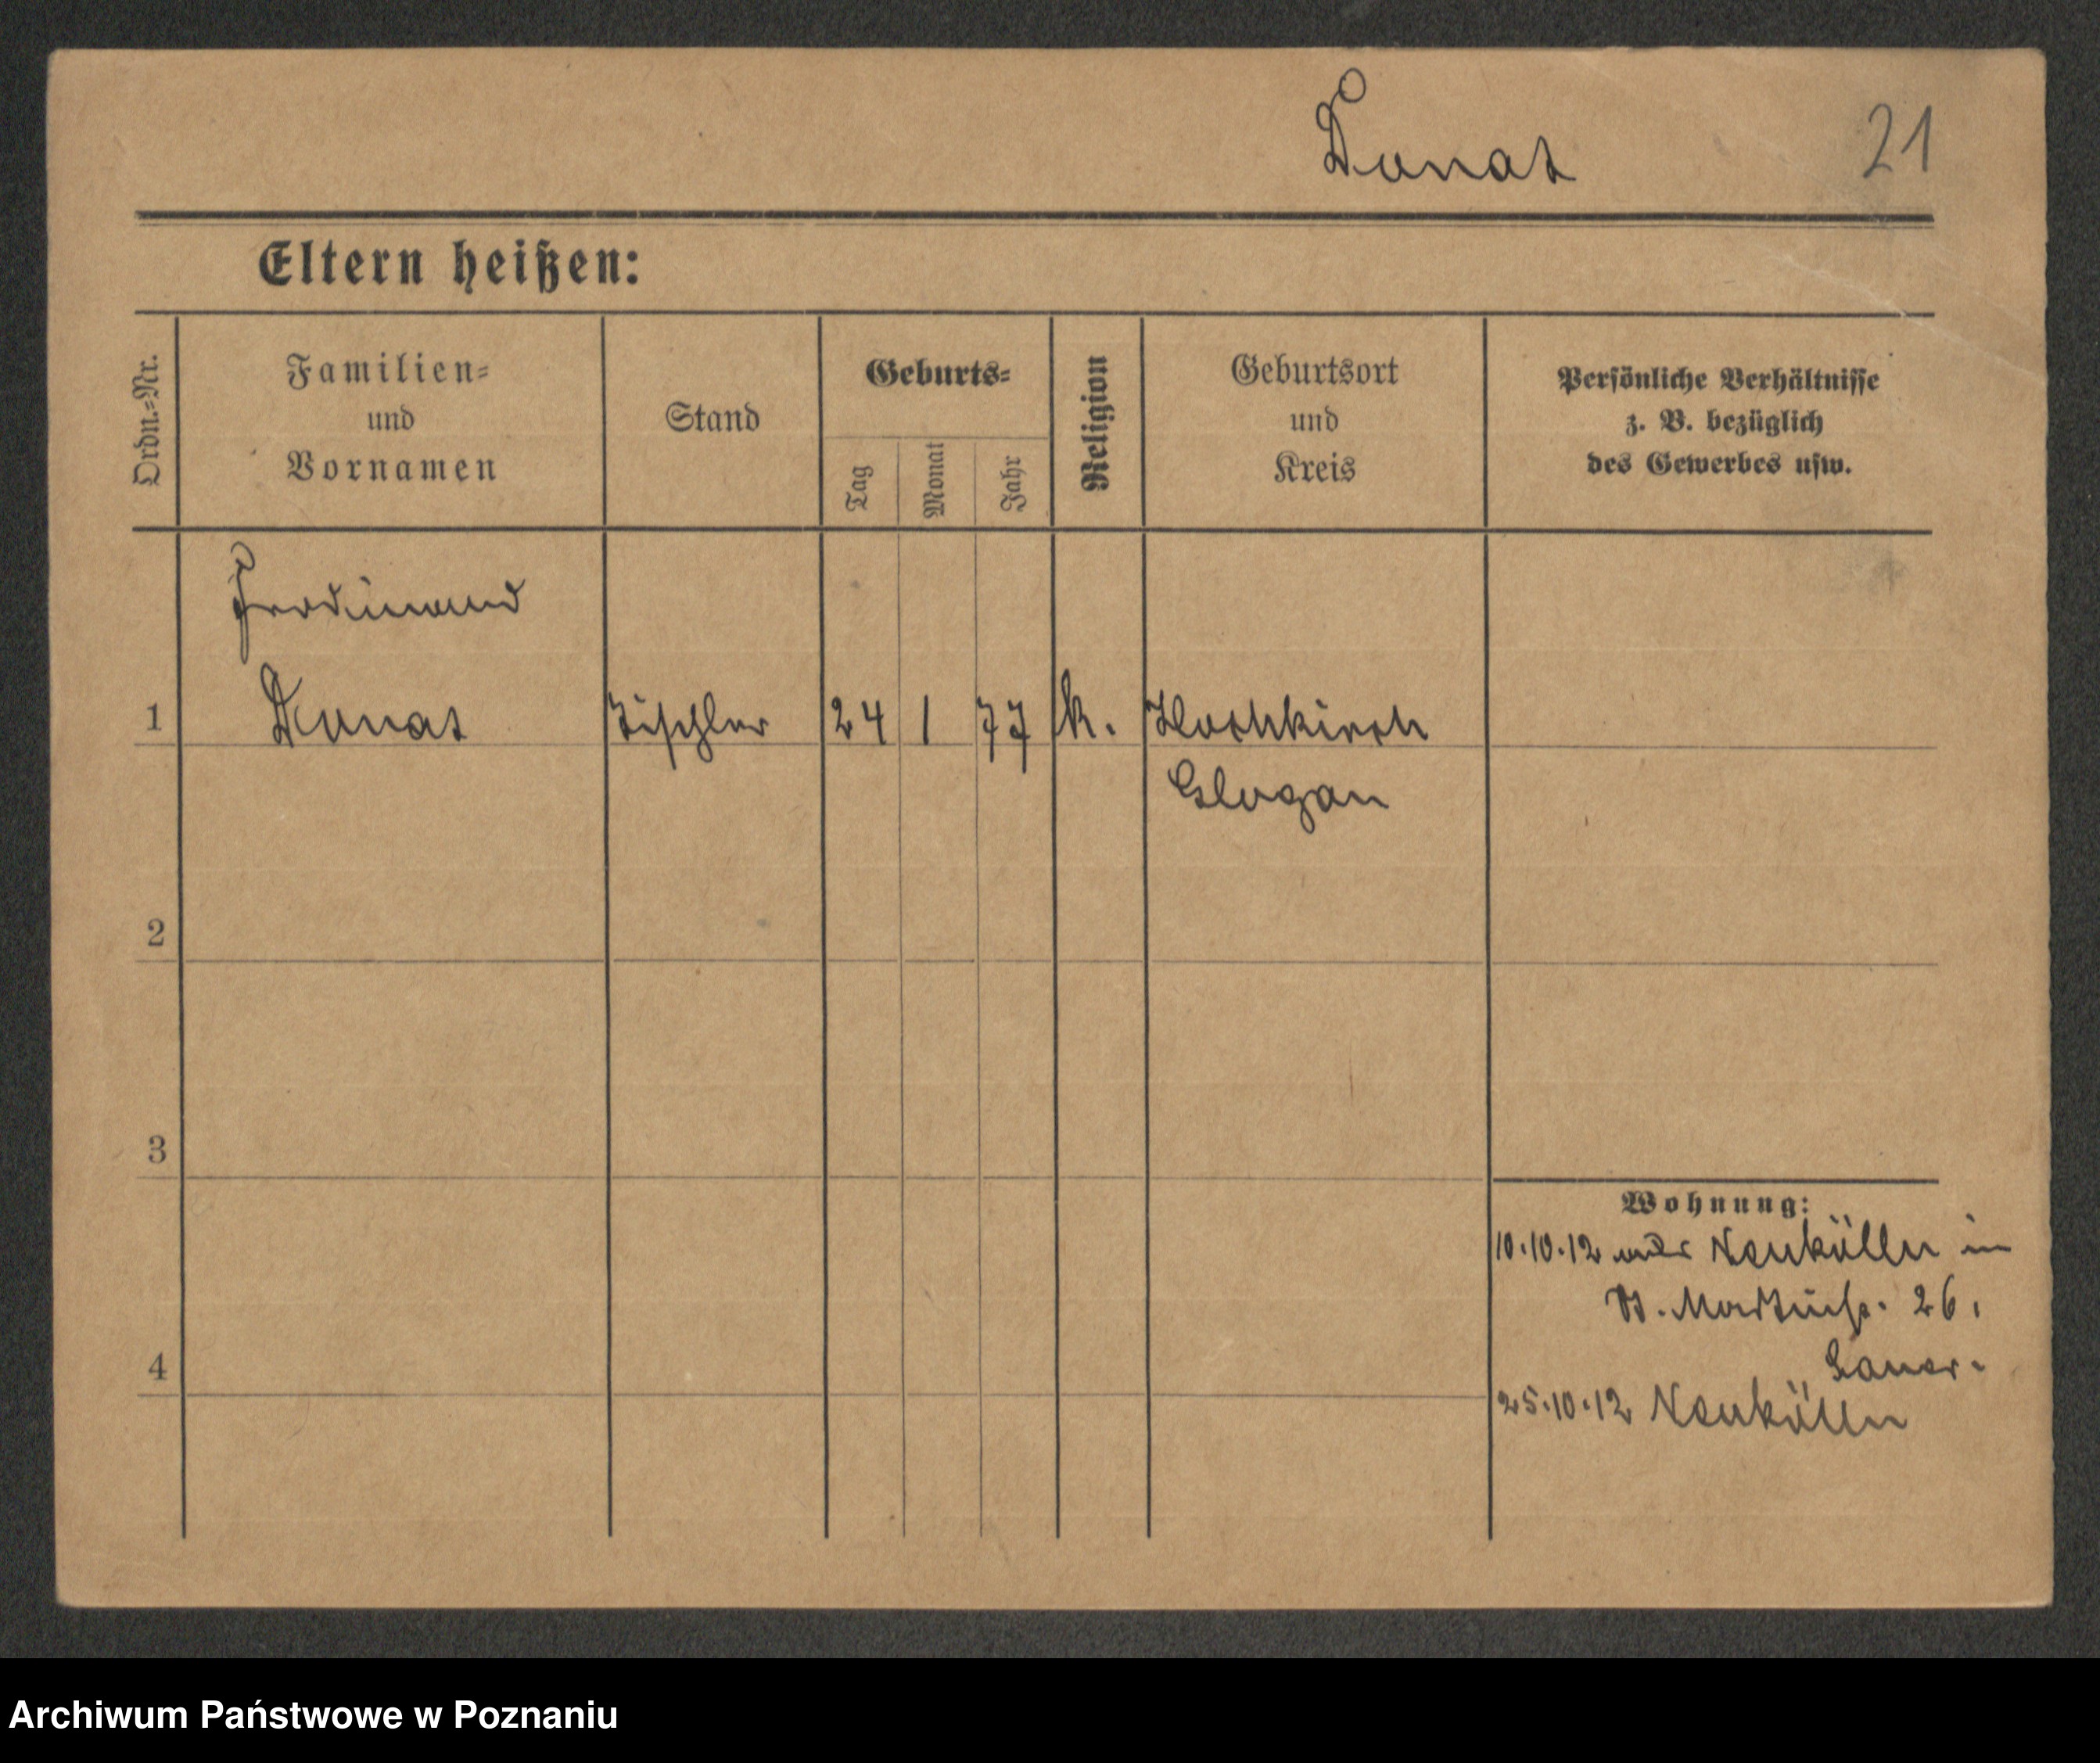 Donat 21
Eltern heißen:
Ordn.-Nr.
Familien-
und
Vornamen
Stand
Geburts-
Tag
Monat
Jahr
Religion
Geburtsort
und
Kreis
Persönliche Verhältnisse
z. B. bezüglich
des Gewerbes usw.
Ferdinand
1 Donat Tischler 24 1 77 k. Hochkirch
Glogau
2
3
Wohnung:
10.10.12 Neukölln in
St. Martinstr. 26,
4
25.10.12 Neukölln
Archiwum Państwowe w Poznaniu